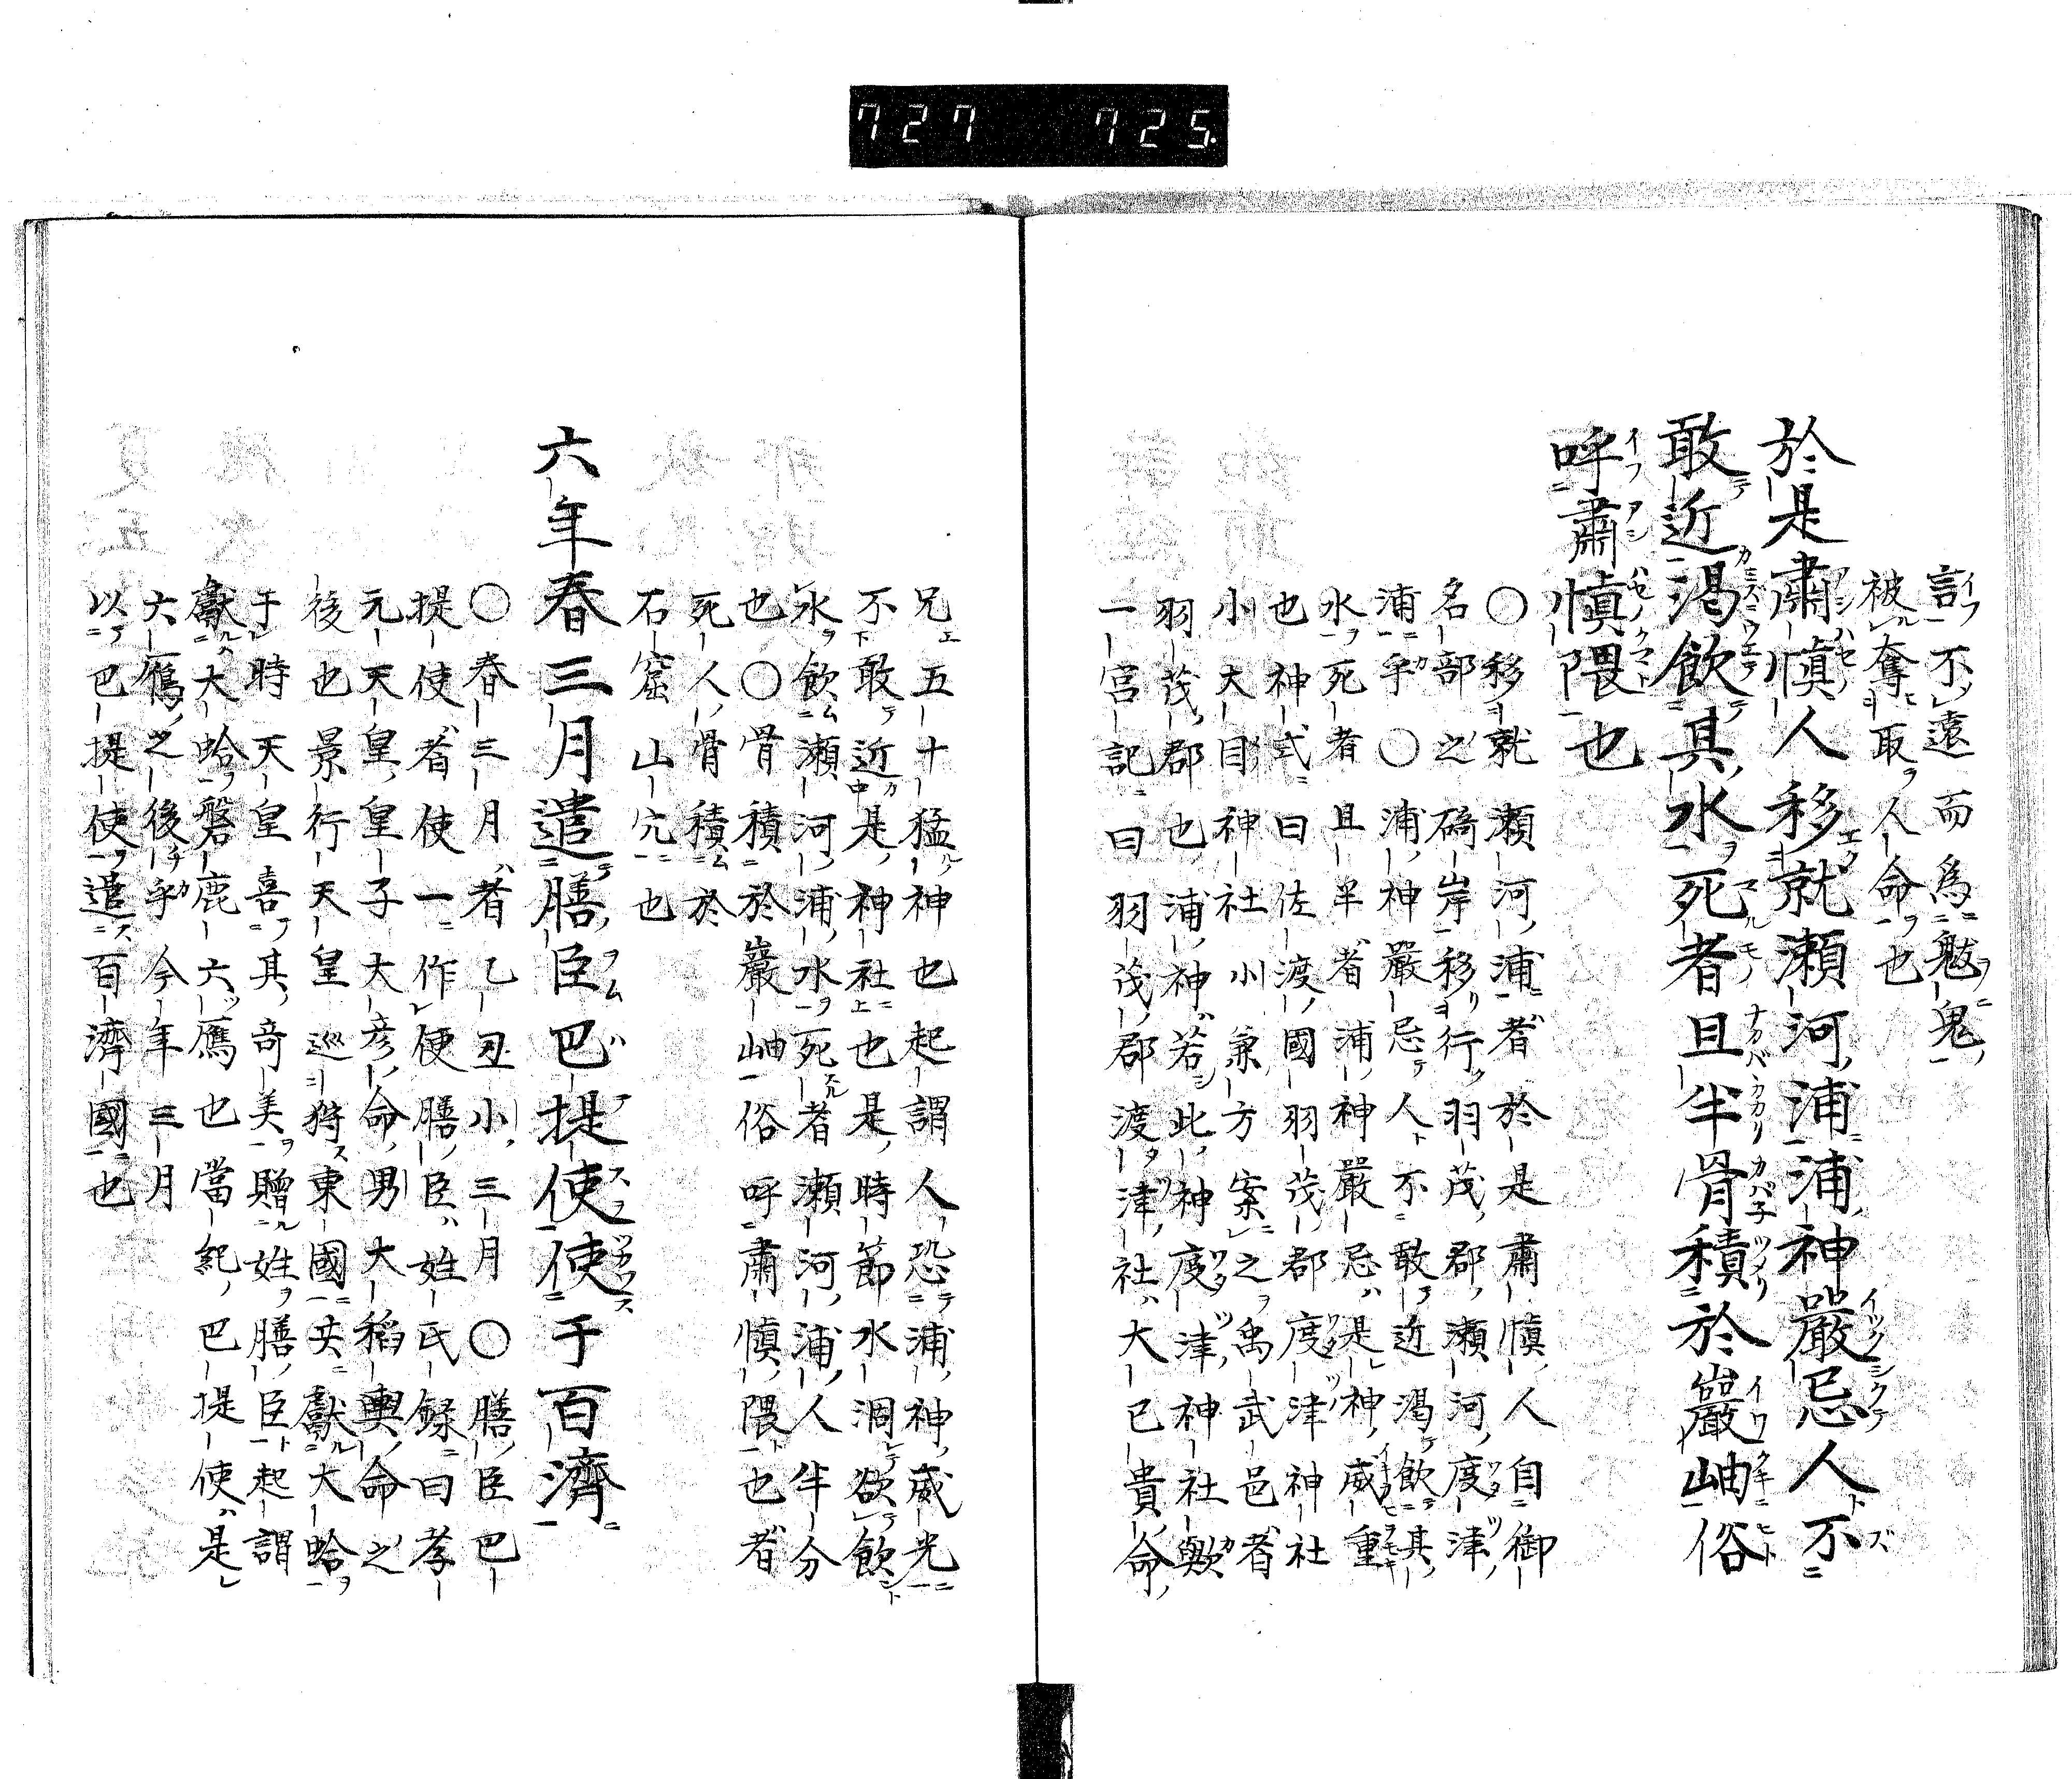 727 725.
言不遠而爲魃鬼
被奪取人命也
於是肅愼人移就瀬河浦浦神嚴忌人不
敢近渇飲其水死者且半骨積於巖岫俗
呼肅愼隈也
〇移就瀬河浦者於是肅愼人自御
名部之碕岸移行羽茂郡瀬河度津
浦乎〇浦神嚴忌人不敢近渇飲其
水死者且半者浦神嚴忌是神威重
也神式曰佐渡國羽茂郡度津神社
小大目神社小兼方案之禹武邑者
羽茂郡也浦神若此神度津神社歟
一宮記曰羽茂郡渡津社大已貴命
兄五十猛神也起謂人恐浦神威光
不敢近是神社也是時節水涸欲飲
水飲瀬河浦水死者瀬河浦人半分
也〇骨積於巖岫俗呼肅愼隈也者
死人骨積於
石窟山宂也
六年春三月遣膳臣巴提使使于百濟
〇春三月者乙丑小三月〇膳臣巴
提使者使一作便膳臣姓氏録曰孝
元天皇皇子大彦命男大稻輿命之
後也景行天皇巡狩東國共獻大蛤
于時天皇喜其竒美贈姓膳臣起謂
獻大蛤磐鹿六鴈也當紀巴提使是
六鴈之後乎今年三月
以巴提使遣百濟國也